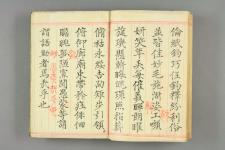 倫紙鈞巧任釣釋紛利俗
並皆佳妙毛施淑姿工嚬
妍笑年矢每催羲暉朗曜
璇璣懸斡晦魄環照指薪
脩祜永綏吉劭矩步引領
俯仰廊廟束帶矜莊徘徊
瞻眺孤陋寡聞愚蒙等誚
謂語助者焉哉乎也